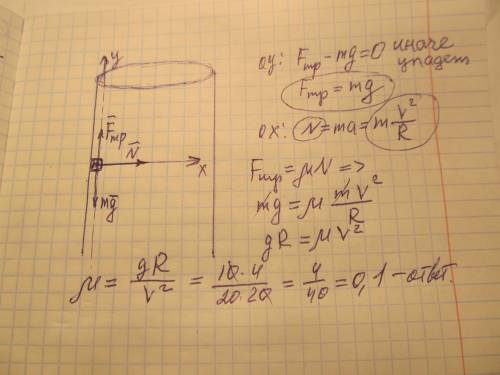 y
F⃗тр
N⃗
x
mg⃗
oy: Fтр - mg = 0 иначе
упадет
Fтр = mg
ox: N = ma = m V²/R
Fтр = μN =>
mg = μ mV²/R
gR = μV²
μ = gR/V² = 10·4/20·20 = 4/40 = 0,1 - ответ.